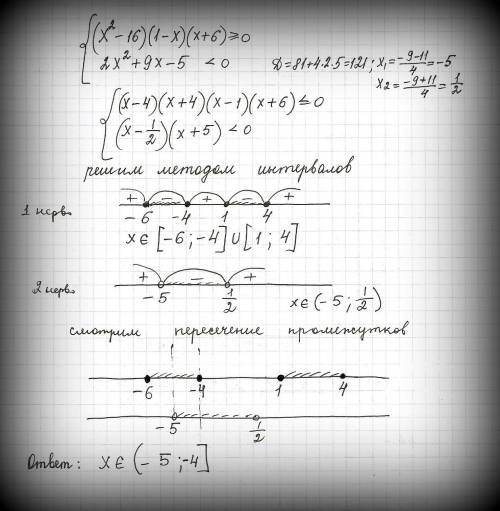 (x²-16)(1-x)(x+6)≥0
2x²+9x-5 <0 D=81+4·2·5=121; x₁=(-9-11)/4=-5
x₂=(-9+11)/4=1/2
(x-4)(x+4)(x-1)(x+6)≤0
(x-1/2)(x+5)<0
решим методом интервалов
1 нерв. + - + - +
-6 -4 1 4
x∈[-6;-4]∪[1;4]
2 нерв. + - +
-5 1/2 x∈(-5;1/2)
смотрим пересечение промежутков
-6 -4 1 4
-5 1/2
Ответ: x∈(-5;-4]